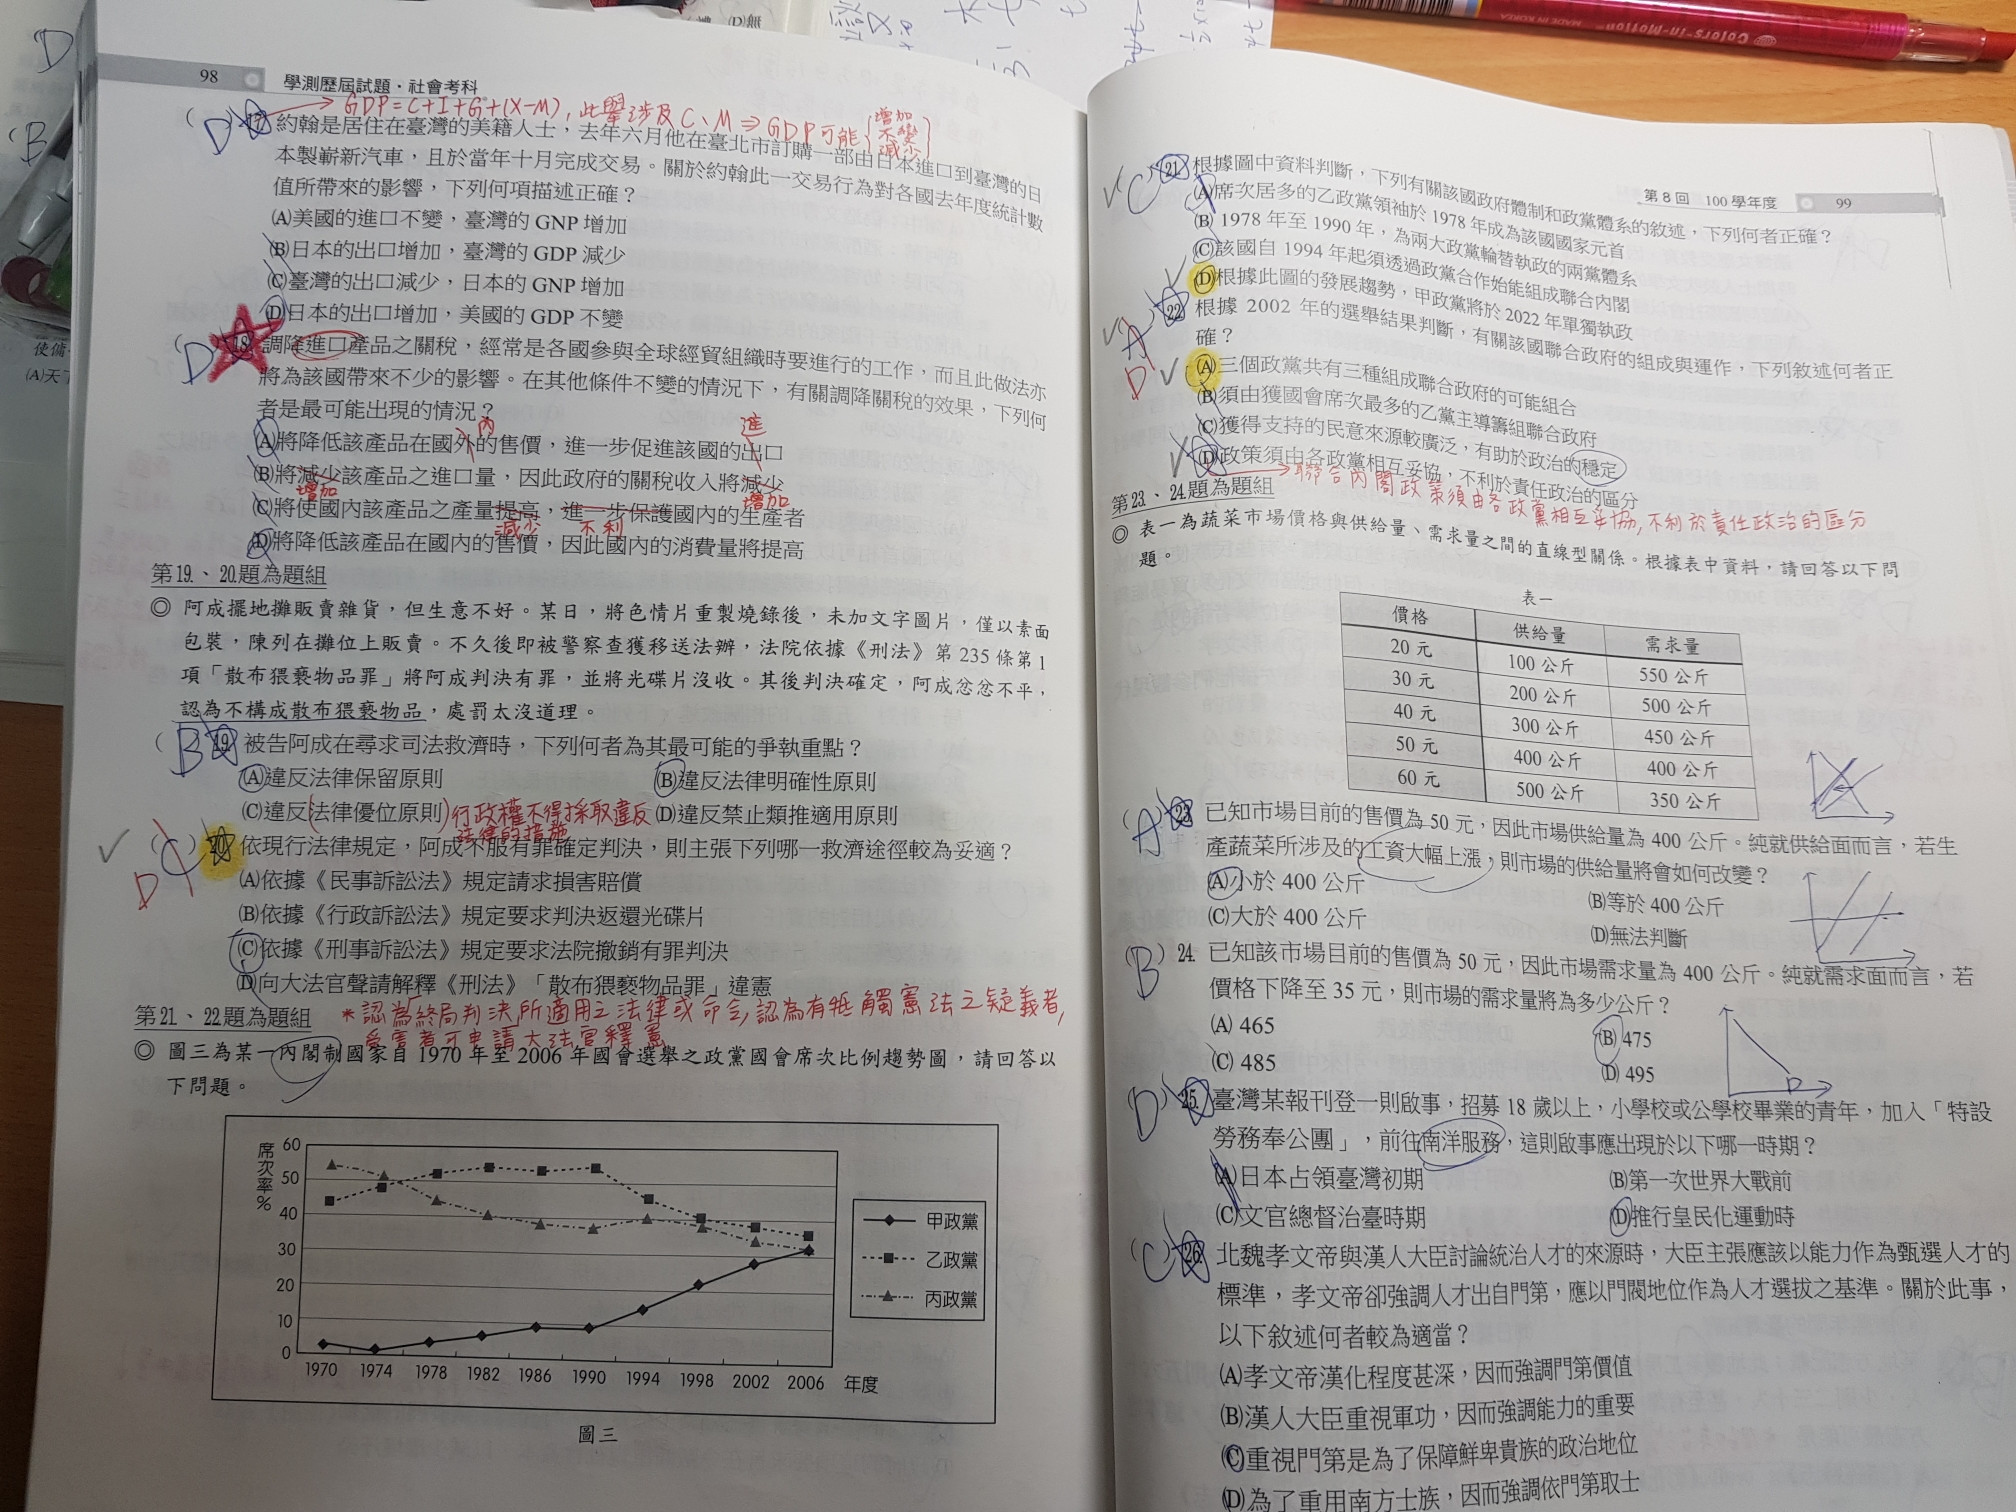 98
學測歷屆試題・社會考科
GDP=C+I+G+(X-M), 此舉涉及 C、M ⇒ GDP可能 {增加 不變 減少}
(D) 17. 約翰是居住在臺灣的美籍人士，去年六月他在臺北市訂購一部由日本進口到臺灣的日
本製嶄新汽車，且於當年十月完成交易。關於約翰此一交易行為對各國去年度統計數
值所帶來的影響，下列何項描述正確？
(A)美國的進口不變，臺灣的 GNP 增加
(B)日本的出口增加，臺灣的 GDP 減少
(C)臺灣的出口減少，日本的 GNP 增加
(D)日本的出口增加，美國的 GDP 不變
(D) 18. 調降進口產品之關稅，經常是各國參與全球經貿組織時要進行的工作，而且此做法亦
將為該國帶來不少的影響。在其他條件不變的情況下，有關調降關稅的效果，下列何
者是最可能出現的情況？
內
進
(A)將降低該產品在國外的售價，進一步促進該國的出口
(B)將減少該產品之進口量，因此政府的關稅收入將減少
增加
增加
(C)將使國內該產品之產量提高，進一步保護國內的生產者
減少
不利
(D)將降低該產品在國內的售價，因此國內的消費量將提高
第19.、20.題為題組
◎ 阿成擺地攤販賣雜貨，但生意不好。某日，將色情片重製燒錄後，未加文字圖片，僅以素面
包裝，陳列在攤位上販賣。不久後即被警察查獲移送法辦，法院依據《刑法》第 235 條第 1
項「散布猥褻物品罪」將阿成判決有罪，並將光碟片沒收。其後判決確定，阿成忿忿不平，
認為不構成散布猥褻物品，處罰太沒道理。
(B) 19. 被告阿成在尋求司法救濟時，下列何者為其最可能的爭執重點？
(A)違反法律保留原則
(B)違反法律明確性原則
(C)違反(法律優位原則) 行政權不得採取違反法律的措施
(D)違反禁止類推適用原則
(C) 20. 依現行法律規定，阿成不服有罪確定判決，則主張下列哪一救濟途徑較為妥適？
D
(A)依據《民事訴訟法》規定請求損害賠償
(B)依據《行政訴訟法》規定要求判決返還光碟片
(C)依據《刑事訴訟法》規定要求法院撤銷有罪判決
(D)向大法官聲請解釋《刑法》「散布猥褻物品罪」違憲
＊認為終局判決所適用之法律或命令,認為有牴觸憲法之疑義者,
受害者可申請大法官釋憲
第21.、22.題為題組
◎ 圖三為某一內閣制國家自 1970 年至 2006 年國會選舉之政黨國會席次比例趨勢圖，請回答以
下問題。
席次率%
60
50
40
30
20
10
0
1970 1974 1978 1982 1986 1990 1994 1998 2002 2006 年度
甲政黨
乙政黨
丙政黨
圖三
第 8 回 100 學年度
99
(C) 21. 根據圖中資料判斷，下列有關該國政府體制和政黨體系的敘述，下列何者正確？
(A)席次居多的乙政黨領袖於 1978 年成為該國國家元首
(B) 1978 年至 1990 年，為兩大政黨輪替執政的兩黨體系
(C)該國自 1994 年起須透過政黨合作始能組成聯合內閣
(D)根據此圖的發展趨勢，甲政黨將於 2022 年單獨執政
(A) 22. 根據 2002 年的選舉結果判斷，有關該國聯合政府的組成與運作，下列敘述何者正
確？
D
(A)三個政黨共有三種組成聯合政府的可能組合
(B)須由獲國會席次最多的乙黨主導籌組聯合政府
(C)獲得支持的民意來源較廣泛，有助於政治的穩定
(D)政策須由各政黨相互妥協，不利於責任政治的區分
聯合內閣政策須由各政黨相互妥協,不利於責任政治的區分
第23.、24.題為題組
◎ 表一為蔬菜市場價格與供給量、需求量之間的直線型關係。根據表中資料，請回答以下問
題。
表一
價格 供給量 需求量
20 元 100 公斤 550 公斤
30 元 200 公斤 500 公斤
40 元 300 公斤 450 公斤
50 元 400 公斤 400 公斤
60 元 500 公斤 350 公斤
(A) 23. 已知市場目前的售價為 50 元，因此市場供給量為 400 公斤。純就供給面而言，若生
產蔬菜所涉及的工資大幅上漲，則市場的供給量將會如何改變？
(A)小於 400 公斤
(B)等於 400 公斤
(C)大於 400 公斤
(D)無法判斷
(B) 24. 已知該市場目前的售價為 50 元，因此市場需求量為 400 公斤。純就需求面而言，若
價格下降至 35 元，則市場的需求量將為多少公斤？
(A) 465
(B) 475
(C) 485
(D) 495
D
(D) 25. 臺灣某報刊登一則啟事，招募 18 歲以上，小學校或公學校畢業的青年，加入「特設
勞務奉公團」，前往南洋服務，這則啟事應出現於以下哪一時期？
(A)日本占領臺灣初期
(B)第一次世界大戰前
(C)文官總督治臺時期
(D)推行皇民化運動時
(C) 26. 北魏孝文帝與漢人大臣討論統治人才的來源時，大臣主張應該以能力作為甄選人才的
標準，孝文帝卻強調人才出自門第，應以門閥地位作為人才選拔之基準。關於此事，
以下敘述何者較為適當？
(A)孝文帝漢化程度甚深，因而強調門第價值
(B)漢人大臣重視軍功，因而強調能力的重要
(C)重視門第是為了保障鮮卑貴族的政治地位
(D)為了重用南方士族，因而強調依門第取士
Colors-in-Motion
MADE IN KOREA
D
(B
使傭
(A)天下